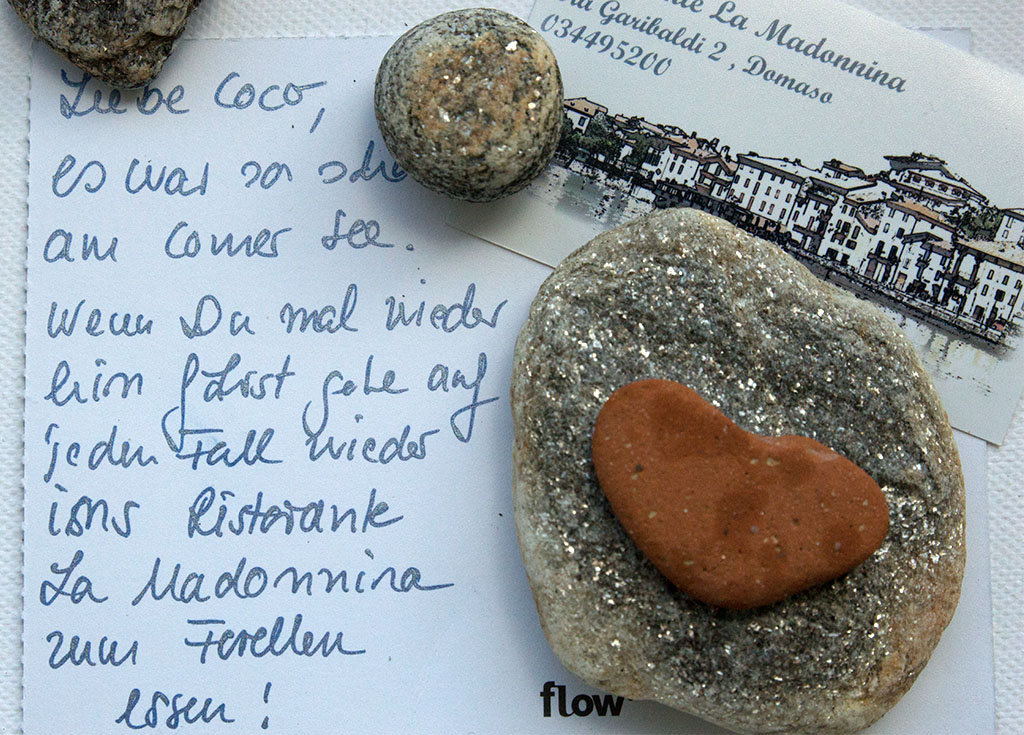 Liebe Coco,
es war so
am Comer See.
Wenn Du mal wieder
hin fährst gehe auf
jeden Fall wieder
ins Ristorante
La Madonnina
zum Forellen
essen!
La Madonnina
Garibaldi 2, Domaso
034495200
flow